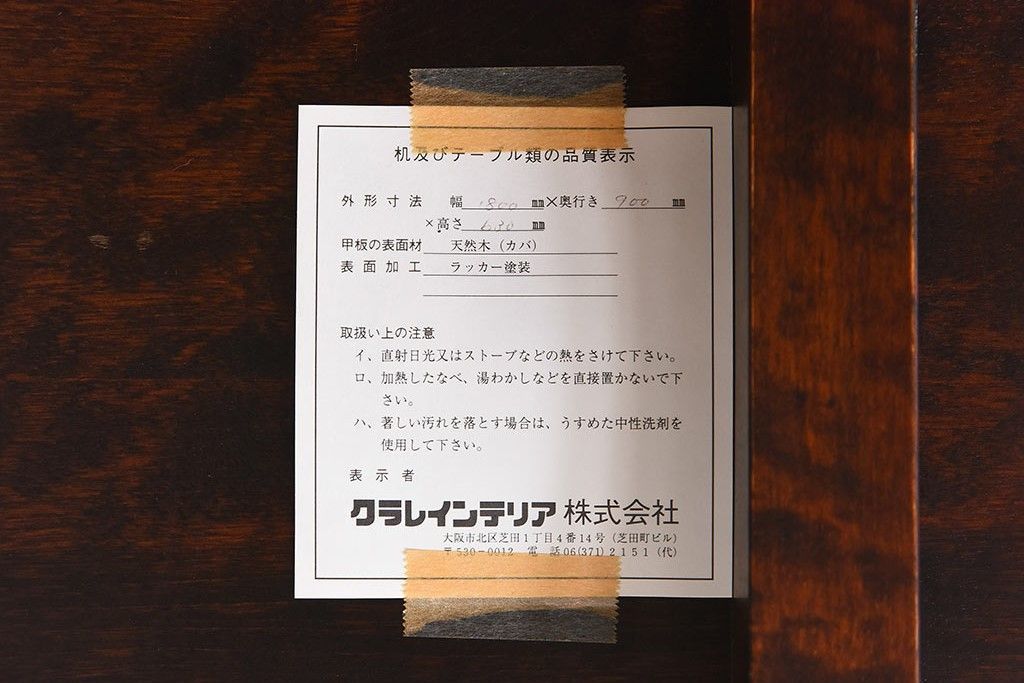 机及びテーブル類の品質表示
外形寸法 幅 1800 ㎜×奥行き 900 ㎜
×高さ 680 ㎜
甲板の表面材 天然木（カバ）
表面加工 ラッカー塗装
取扱い上の注意
イ、直射日光又はストーブなどの熱をさけて下さい。
ロ、加熱したなべ、湯わかしなどを直接置かないで下
さい。
ハ、著しい汚れを落とす場合は、うすめた中性洗剤を
使用して下さい。
表示者
クラレインテリア 株式会社
大阪市北区芝田1丁目4番14号（芝田町ビル）
〒530-0012 電話06(371)2151（代）